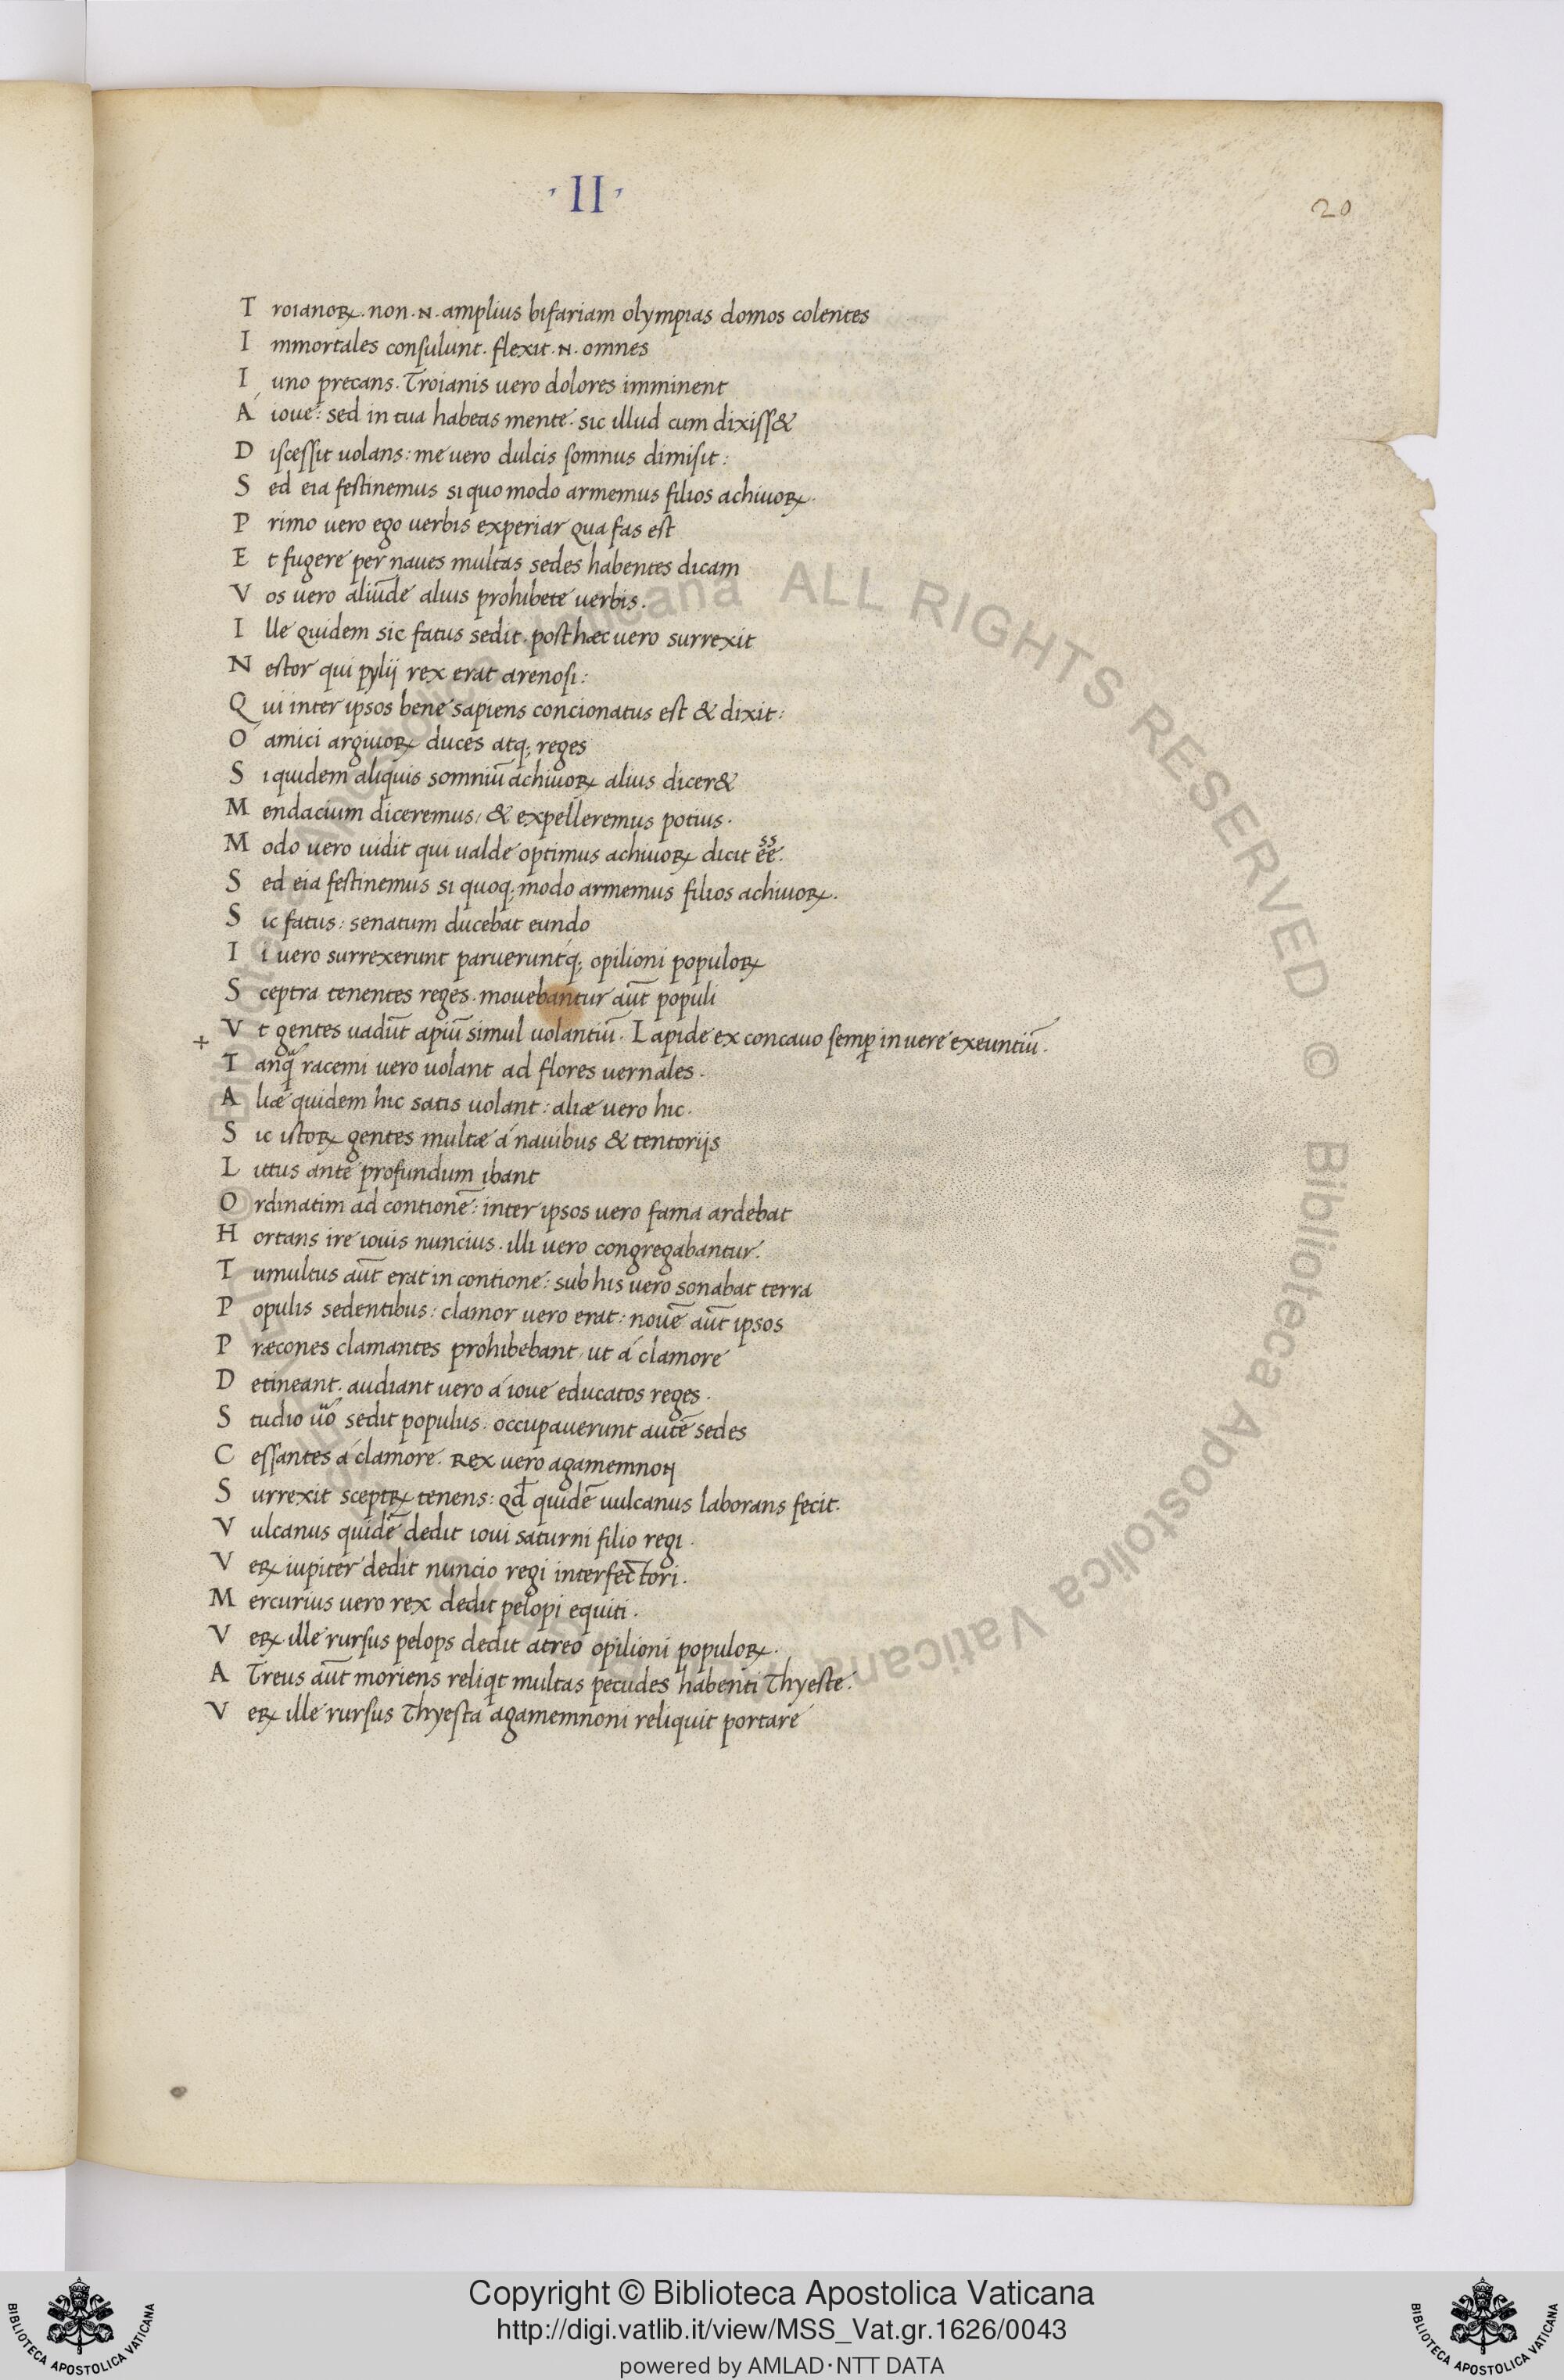 · II ·
20
T roianoꝝ. non .N. amplius bifariam olympias domos colentes
I mmortales consulunt. flexit .N. omnes
I uno precans. Troianis uero dolores imminent
Á ioue: sed in tua habeas mente. sic illud cum dixiss&
D iscessit uolans: me uero dulcis somnus dimisit:
S ed eia festinemus si quo modo armemus filios achiuoꝝ.
P rimo uero ego uerbis experiar qua fas est
E t fugere per naues multas sedes habentes dicam
V os uero aliūde alius prohibete uerbis.
I lle quidem sic fatus sedit. post hæc uero surrexit
N estor qui pylij rex erat arenosi:
Q ui inter ipsos bene sapiens concionatus est & dixit:
Ó amici argiuoꝝ duces atq; reges
S i quidem aliquis somniū achiuoꝝ alius dicer&
M endacium diceremus, & expelleremus potius.
M odo uero uidit qui ualde optimus achiuoꝝ dicit ēē.
ss
S ed eia festinemus si quoq; modo armemus filios achiuoꝝ.
S ic fatus: senatum ducebat eundo
I i uero surrexerunt parueruntq́; opilioni populoꝝ
S ceptra tenentes reges. mouebantur aūt populi
+ V t gentes uadūt apiū simul uolantiū. Lapide ex concauo semꝑ in uere exeuntiū.
T anq̃ racemi uero uolant ad flores uernales.
A liæ quidem hic satis uolant: aliæ uero hic.
S ic istoꝝ gentes multæ á nauibus & tentorijs
L ittus ante profundum ibant
O rdinatim ad contionē: inter ipsos uero fama ardebat
H ortans ire iouis nuncius. illi uero congregabantur.
T umultus aūt erat in contione: sub his uero sonabat terra
P opulis sedentibus: clamor uero erat: nouē aūt ipsos
P ræcones clamantes prohibebant, ut á clamore
D etineant. audiant uero á ioue educatos reges.
S tudio ūo sedit populus. occupauerunt autē sedes
C essantes á clamore. Rex uero agamemnon
S urrexit sceptꝝ tenens: qd̄ quidē uulcanus laborans fecit.
V ulcanus quidē dedit ioui saturni filio regi.
V eꝝ iupiter dedit nuncio regi interfectori.
M ercurius uero rex dedit pelopi equiti.
V eꝝ ille rursus pelops dedit atreo opilioni populoꝝ.
A Treus aūt moriens reliqt multas pecudes habenti Thyeste.
V eꝝ ille rursus Thyesta agamemnoni reliquit portare
Biblioteca Apostolica Vaticana ALL RIGHTS RESERVED © Biblioteca Apostolica Vaticana
Copyright © Biblioteca Apostolica Vaticana
http://digi.vatlib.it/view/MSS_Vat.gr.1626/0043
powered by AMLAD·NTT DATA
BIBLIOTECA APOSTOLICA VATICANA
BIBLIOTECA APOSTOLICA VATICANA